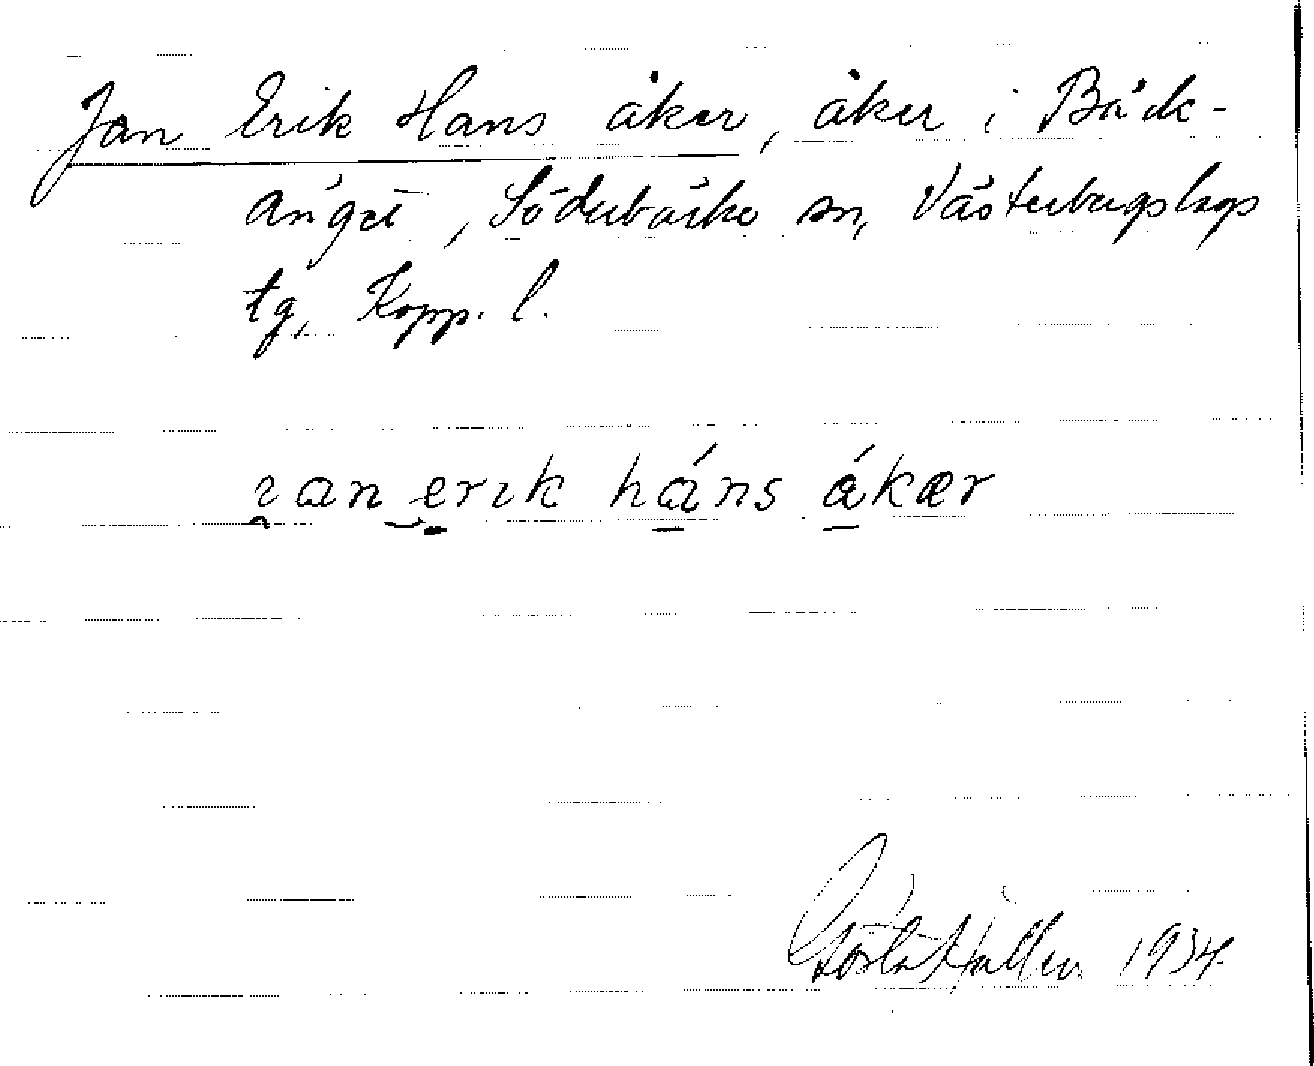 Jan Erik Hans åker, åker i Bäck-
änget, Söderbärke sn, Västerbergslags
tg, Kopp. l.
ɪan erɪk háns ákær
Gösta Hallen 1934